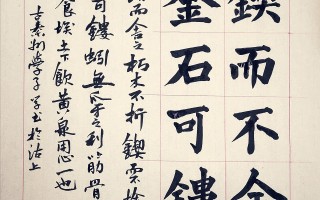 鍥而不舍
金石可鏤
而舍之朽木不折鍥而
可鏤蚓無爪牙之利筋骨
食埃土下飲黃泉用心一也
古秦州學子書於沽上